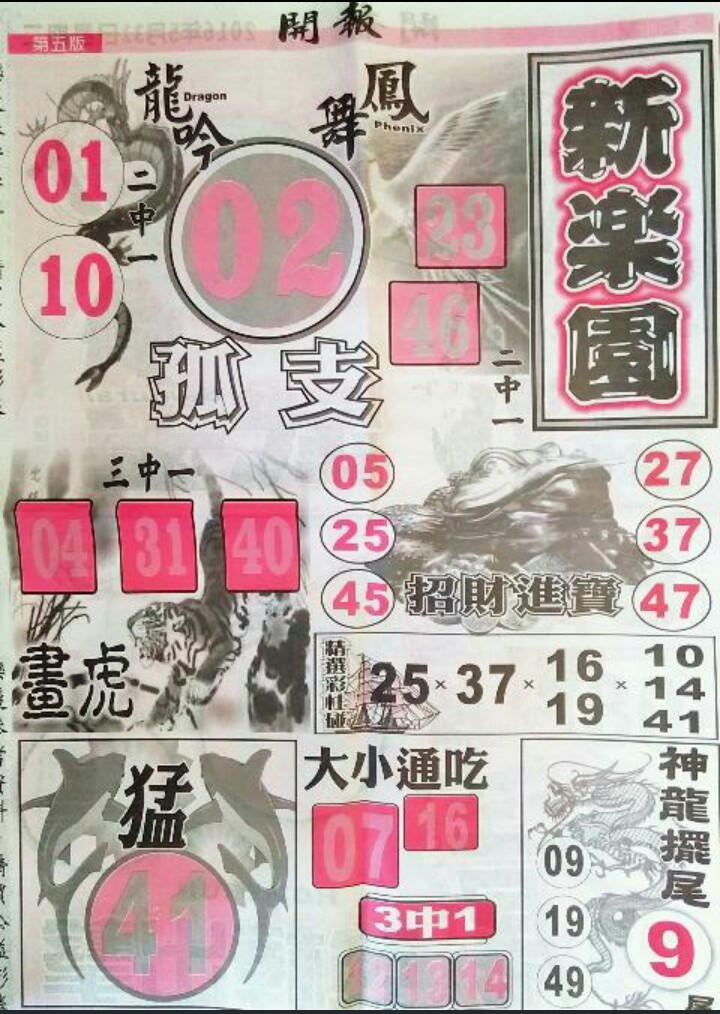 開報
第五版
龍吟
Dragon
鳳舞
Phenix
新楽園
01
10
二中一
02
孤支
23
46
二中一
三中一
04 31 40
畫虎
05
25
45
27
37
47
招財進寶
精選彩柱碰
25 × 37 × 16 19 × 10 14 41
猛
41
大小通吃
07 16
3中1
12 13 14
神龍擺尾
09
19
49
9
尾